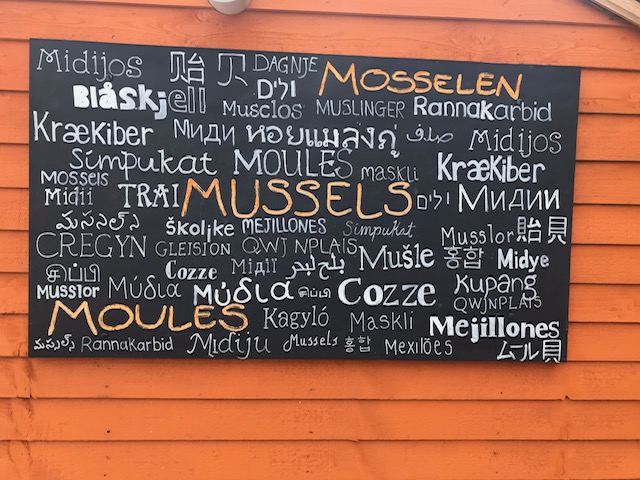 Midijos 貽 贝 DAGNJE MOSSELEN
Blåskjell Musclos MUSLINGER Rannakarbid
Kræekiber Миди หอยแมลงภู่ صدف Midijos
Simpukat MOULES maskli Kræekiber
Mossels Midii TRAI MUSSELS Мидии
Školjke MEJILLONES Simpukat Musslor 貽貝
CREGYN GLEISION QWJ NPLAIS Mušle 홍합 Midye
சிப்பி Cozze Мідії بلح البحر Kupang
Musslor Μύδια Μύδια சிப்பி Cozze QWJNPLAIS
MOULES Kagyló Maskli Mejillones
Rannakarbid Midiju Mussels 홍합 Mexilões ムール貝